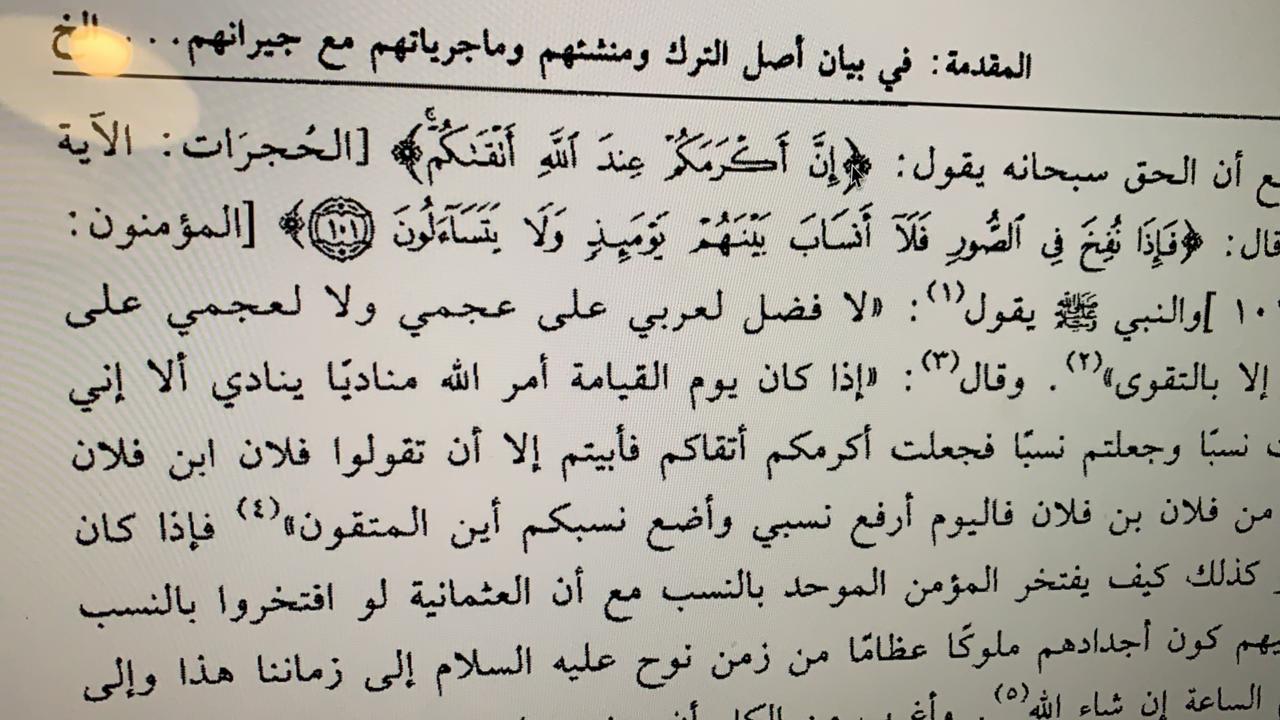 المقدمة: في بيان أصل الترك ومنشئهم وماجرياتهم مع جيرانهم... الخ
أن الحق سبحانه يقول: ﴿إِنَّ أَكْرَمَكُمْ عِندَ ٱللَّهِ أَتْقَىٰكُمْ﴾ [الحُجرَات: الآية
قال: ﴿فَإِذَا نُفِخَ فِي ٱلصُّورِ فَلَآ أَنسَابَ بَيْنَهُمْ يَوْمَئِذٍ وَلَا يَتَسَآءَلُونَ ١٠١﴾ [المؤمنون:
] والنبي ﷺ يقول(١): «لا فضل لعربي على عجمي ولا لعجمي على
إلا بالتقوى»(٢). وقال(٣): «إذا كان يوم القيامة أمر الله مناديًا ينادي ألا إني
نسبًا وجعلتم نسبًا فجعلت أكرمكم أتقاكم فأبيتم إلا أن تقولوا فلان ابن فلان
من فلان بن فلان فاليوم أرفع نسبي وأضع نسبكم أين المتقون»(٤) فإذا كان
كذلك كيف يفتخر المؤمن الموحد بالنسب مع أن العثمانية لو افتخروا بالنسب
كون أجدادهم ملوكًا عظامًا من زمن نوح عليه السلام إلى زماننا هذا وإلى
الساعة إن شاء الله(٥).